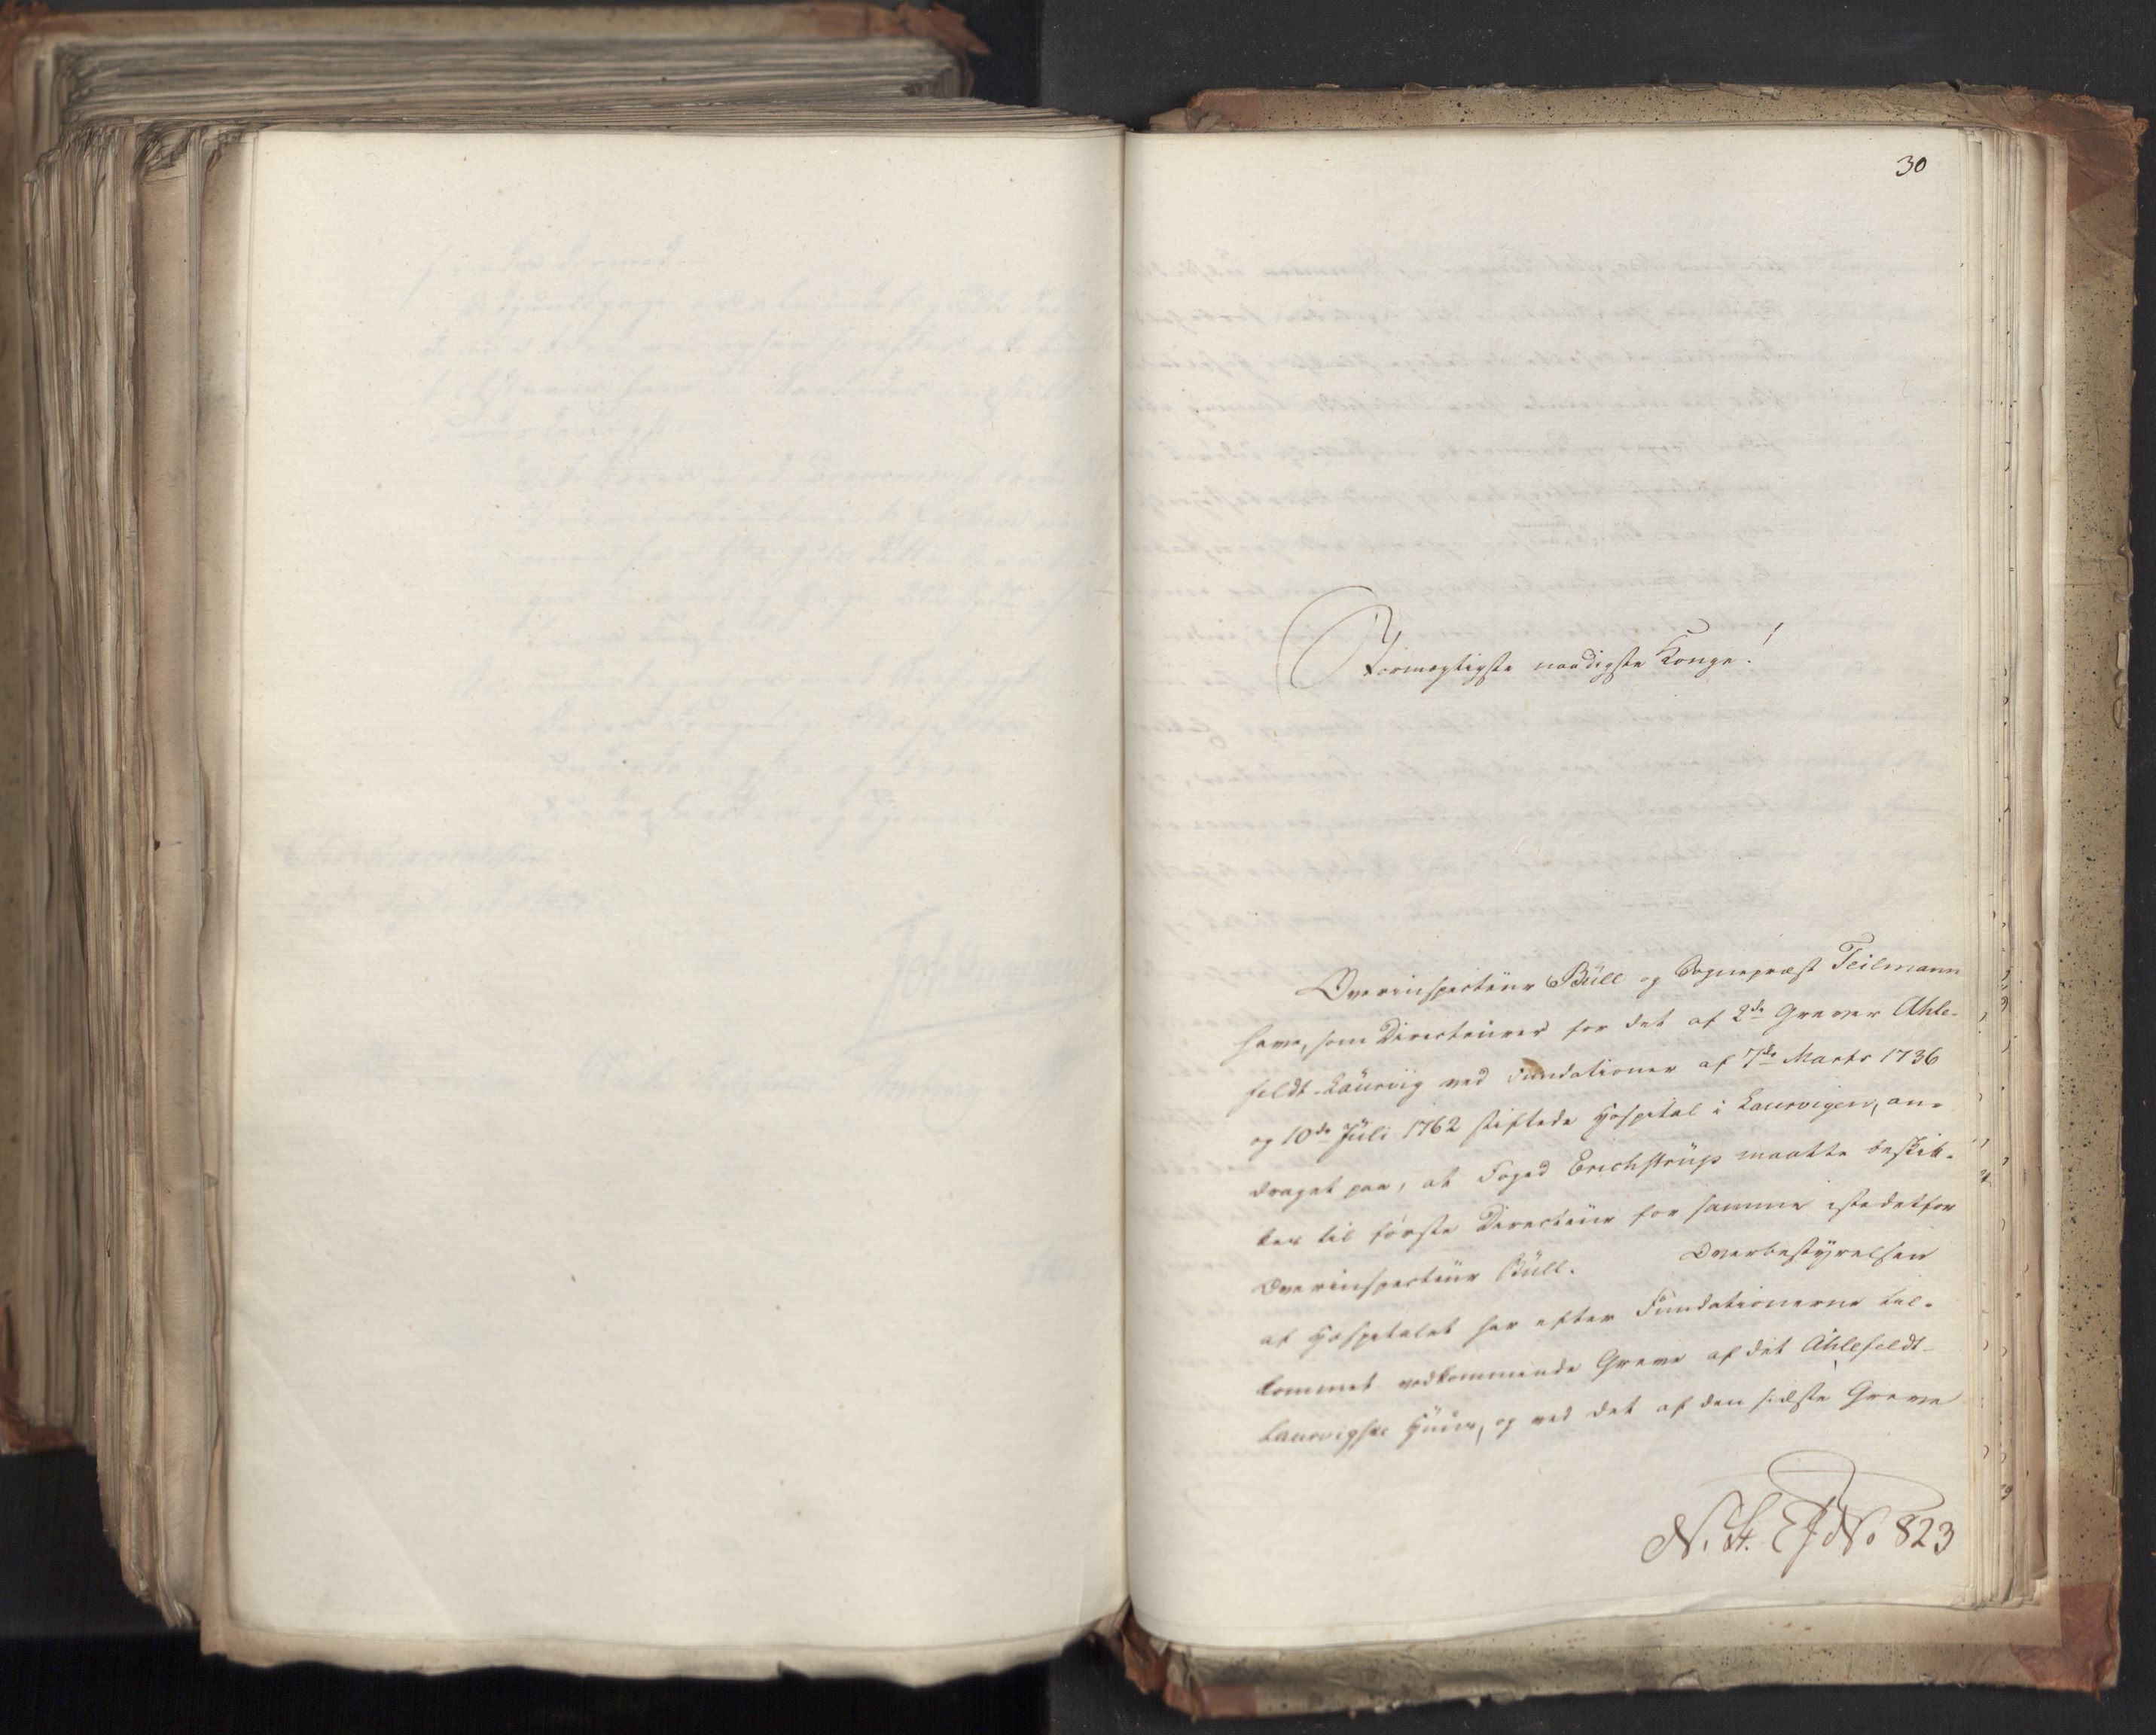 30
Stormægtigste naadigste Konge!
Overinspecteur Bull og Sognepræst Teilmann
have, som Directeurer for det af 2de Grever Ahle-
feldt-Laurvig ved Fundationer af 7de Marts 1736
og 10de Juli 1762 stiftede Hospital i Laurvigen, an-
draget paa, at Foged Erichstrup maatte beskik-
kes til første Directeur for samme istedetfor
Overinspecteur Bull. Overbestyrelsen
af Hospitalet har efter Fundationerne til-
kommet vedkommende Greve af det Ahlefeldt-
Laurvigske Huus, og ved det af den sidste Greve
N. St. E J No 823